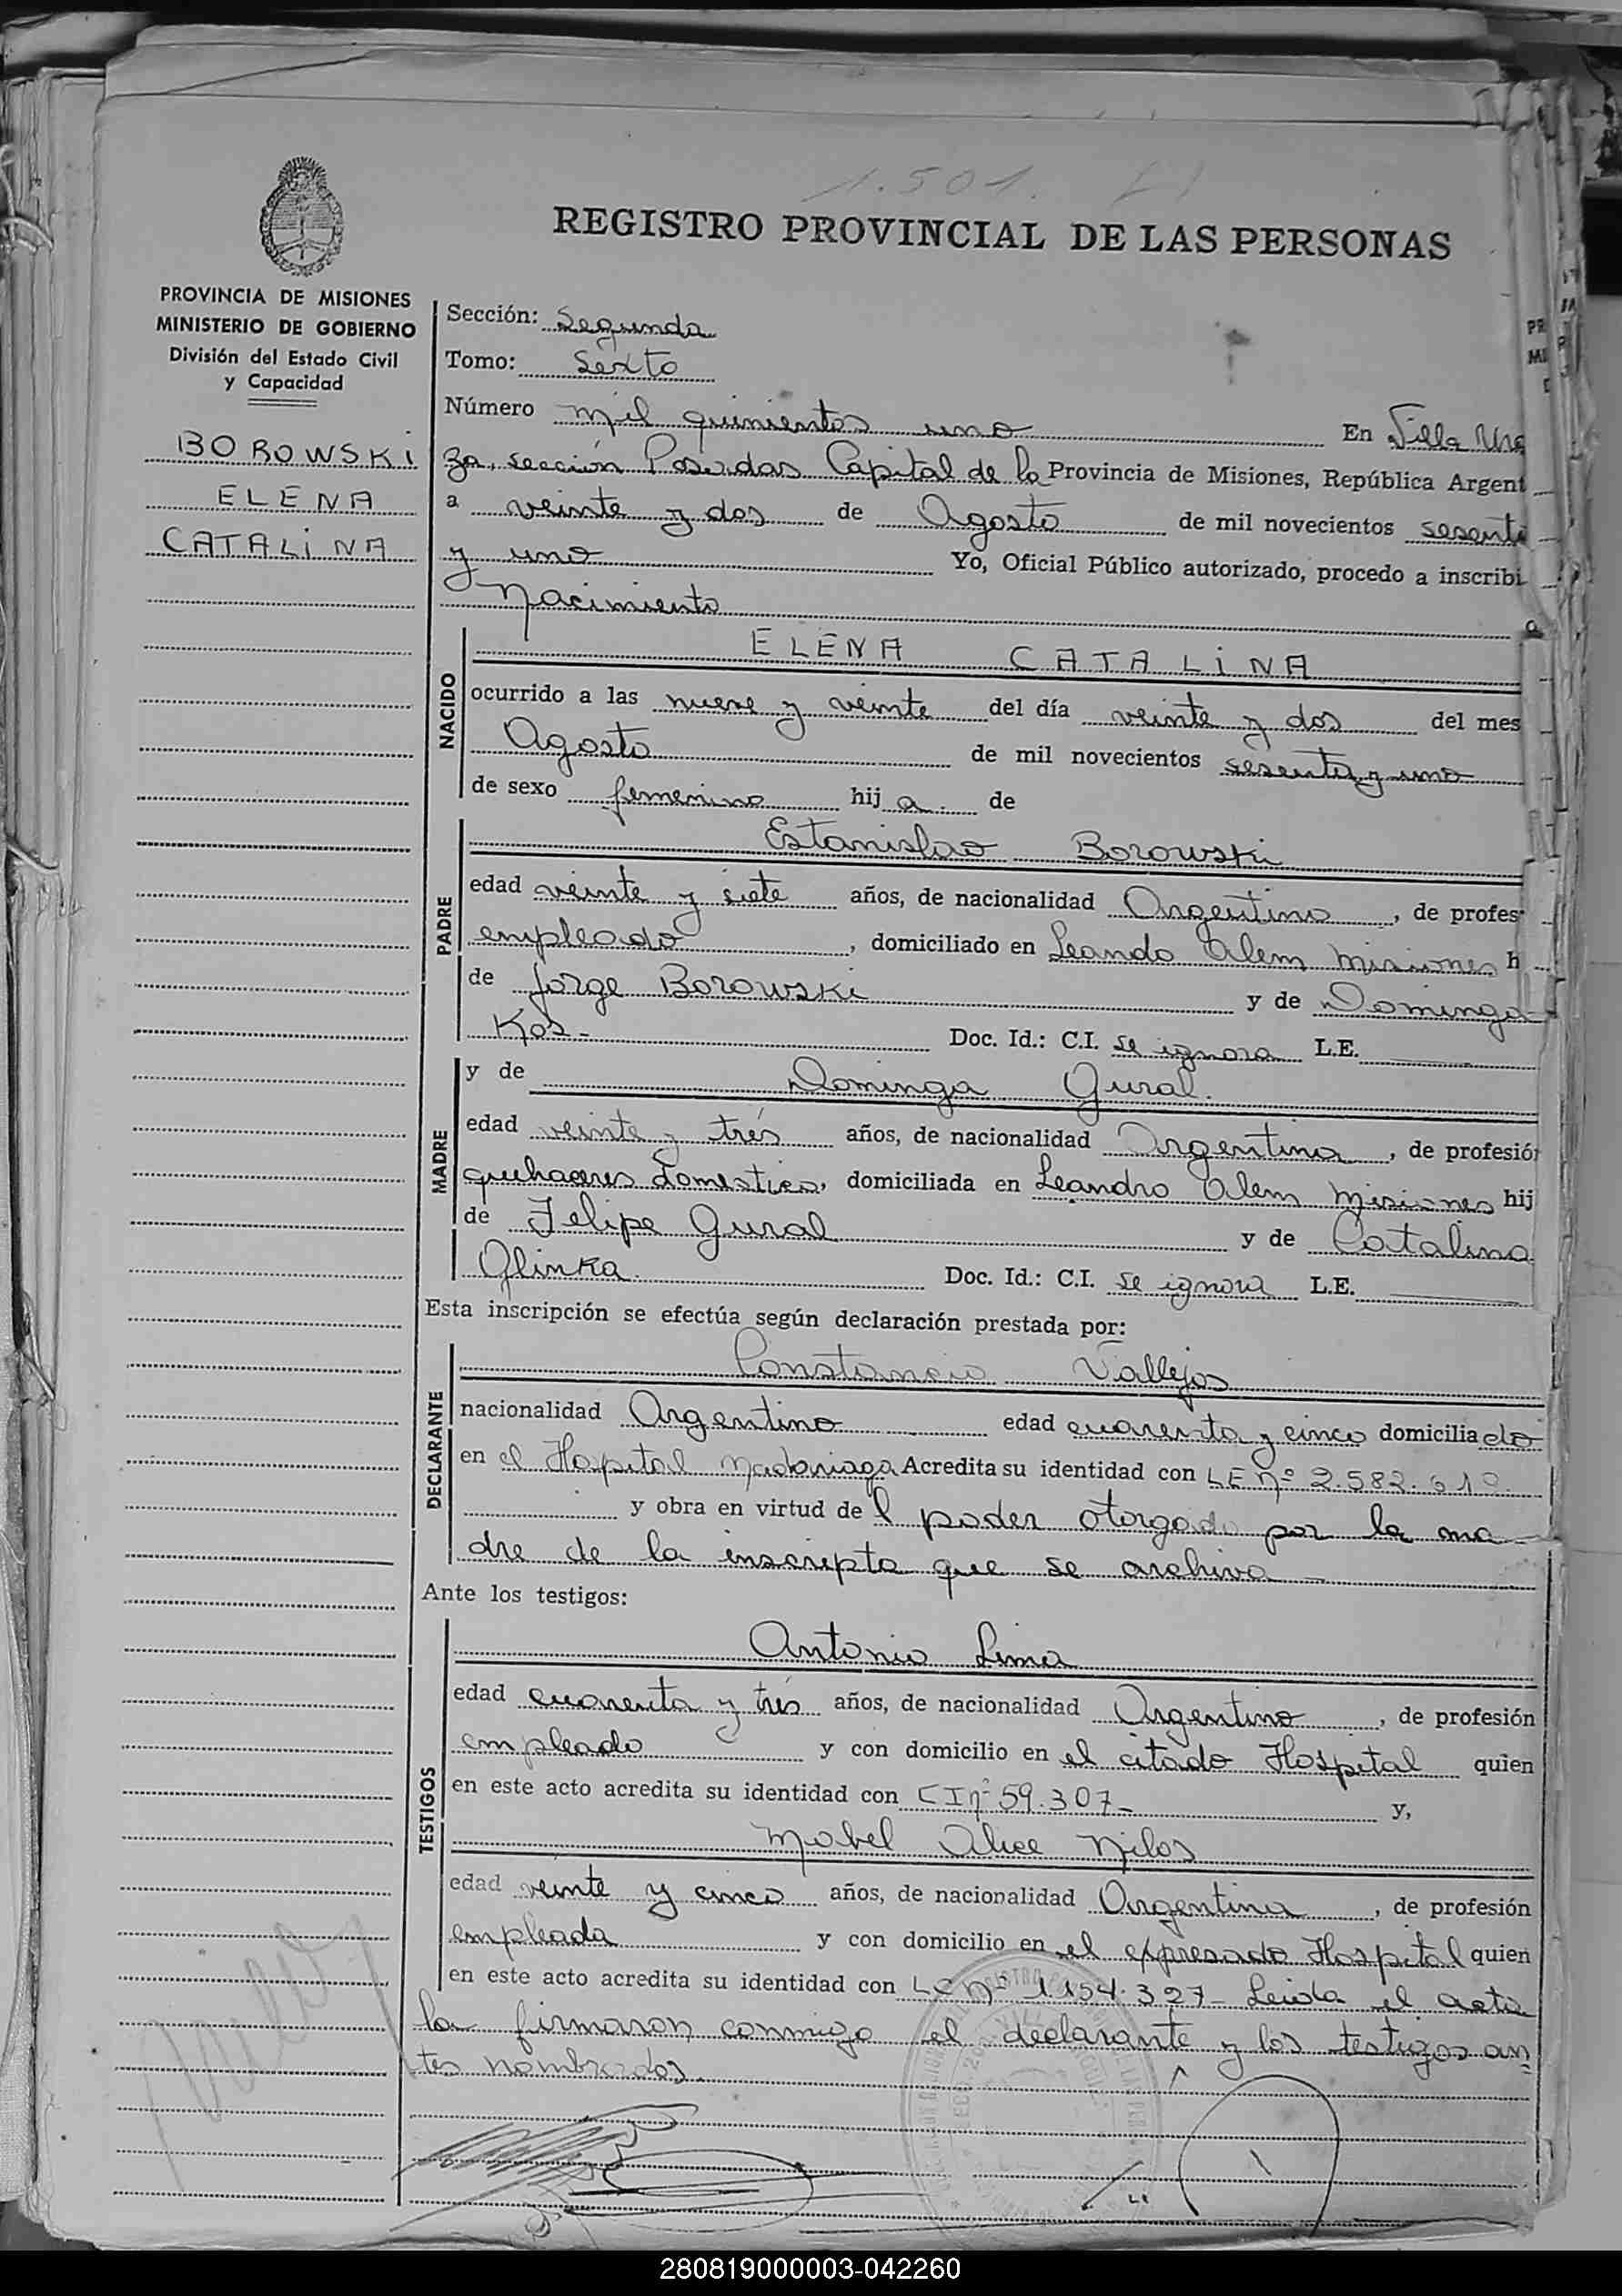 1.501.
REGISTRO PROVINCIAL DE LAS PERSONAS
PROVINCIA DE MISIONES
MINISTERIO DE GOBIERNO
División del Estado Civil
y Capacidad
BOROWSKI
ELENA
CATALINA
Sección: Segunda
Tomo: Sexto
Número mil quinientos uno En Villa Urq
za, sección Posadas Capital de la Provincia de Misiones, República Argent
a veinte y dos de Agosto de mil novecientos sesenta
y uno Yo, Oficial Público autorizado, procedo a inscribi
Nacimiento
NACIDO
ELENA CATALINA
ocurrido a las nueve y veinte del día veinte y dos del mes
Agosto de mil novecientos sesenta y uno
de sexo femenino hij a. de
PADRE
Estanislao Borowski
edad veinte y siete años, de nacionalidad Argentino, de profes
empleado, domiciliado en Leando Alem Misiones h
de Jorge Borowski y de Dominga
Kos- Doc. Id.: C.I. se ignora L.E.
MADRE
y de Dominga Gural.
edad veinte y trés años, de nacionalidad Argentina, de profesión
quehaceres domesticos, domiciliada en Leandro Alem Misiones hij
de Felipe Gural y de Catalina
Glinka. Doc. Id.: C.I. se ignora L.E.
Esta inscripción se efectúa según declaración prestada por:
DECLARANTE
Constancio Vallejos
nacionalidad Argentino edad cuarenta y cinco domiciliado
en el Hospital Madariaga Acredita su identidad con LE nº 2.582.
y obra en virtud de l poder otorgado por la ma
dre de la inscripta que se archiva
Ante los testigos:
TESTIGOS
Antonio Lima
edad cuarenta y trés años, de nacionalidad Argentino, de profesión
empleado y con domicilio en el citado Hospital quien
en este acto acredita su identidad con CI nº 59.307- y,
Mabel Alice Nilos
edad veinte y cinco años, de nacionalidad Argentina, de profesión
empleada y con domicilio en el expresado Hospital quien
en este acto acredita su identidad con LC nº 1154.327- Leida el acta
la firmaron conmigo el declarante y los testigos an
tes nombrados.
280819000003-042260